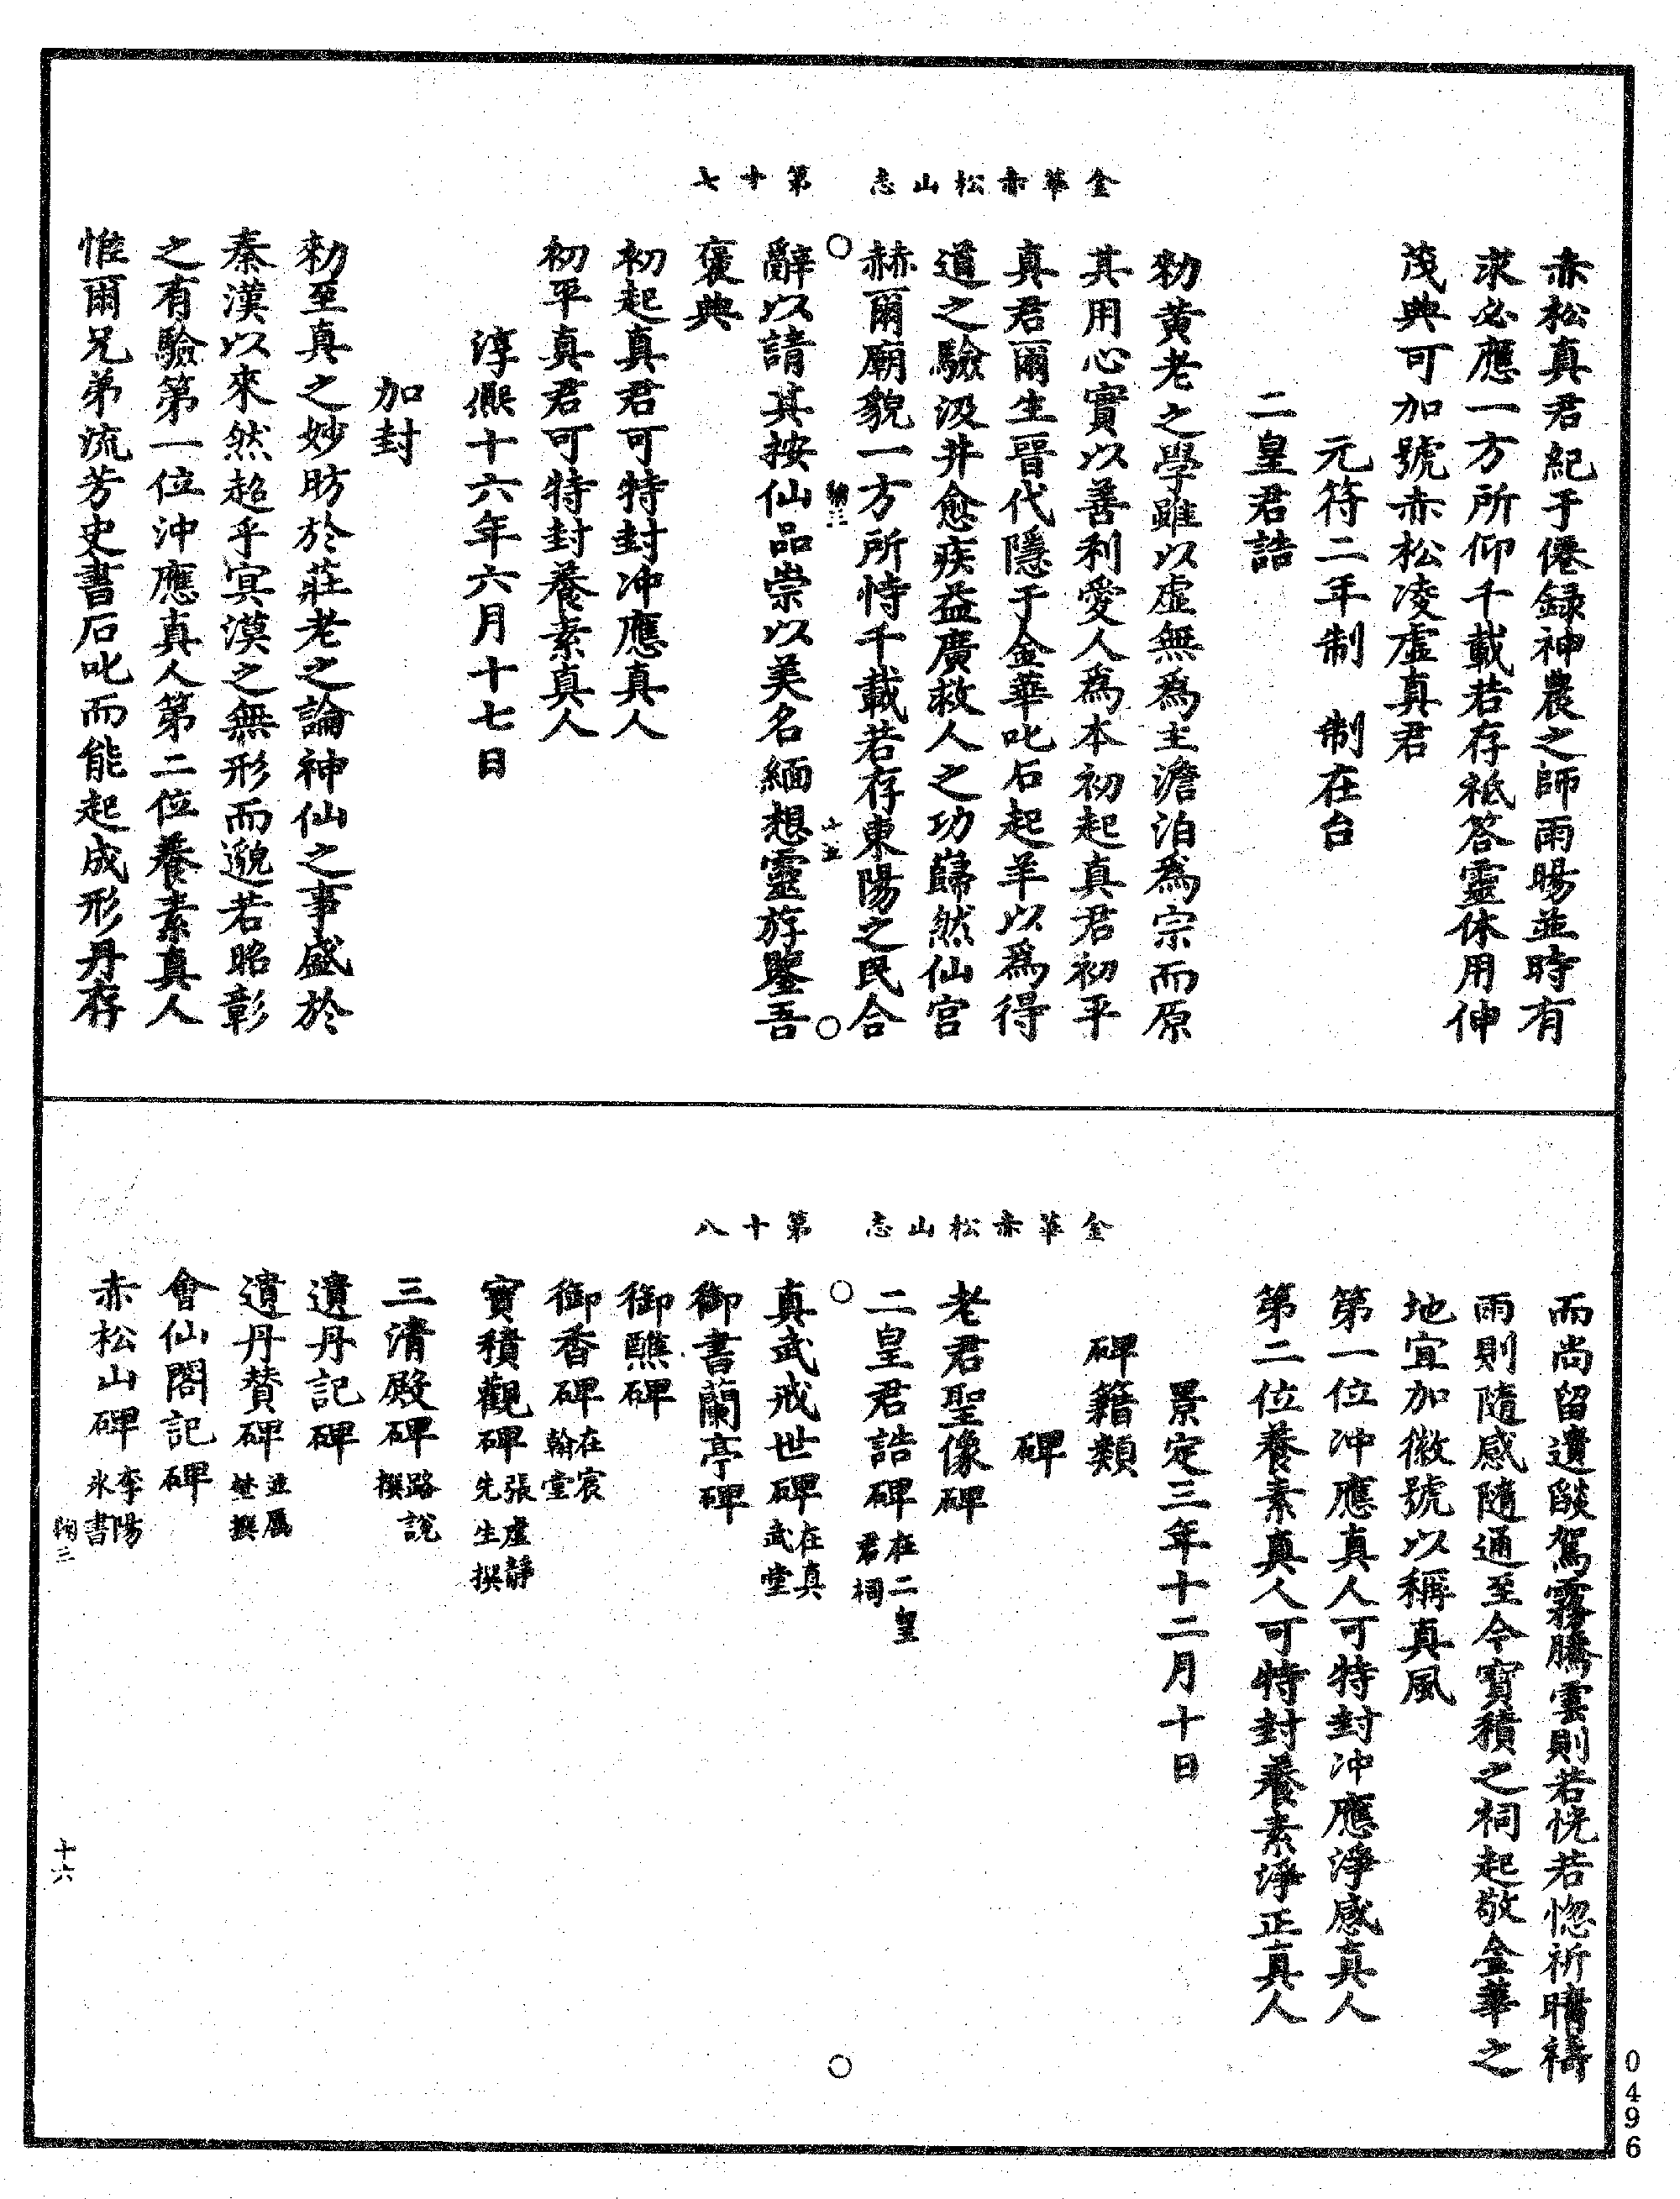 金華赤松山志　第十七
赤松真君紀于僊録神農之師雨暘並時有
求必應一方所仰千載若存祇答靈休用伸
茂典可加號赤松凌虛真君
元符二年制　制在台
二皇君誥
勑黄老之學雖以虛無為主澹泊為宗而原
其用心實以善利愛人為本初起真君初平
真君爾生晉代隱于金華叱石起羊以為得
道之驗汲井愈疾益廣救人之功巋然仙官
赫爾廟貌一方所恃千載若存東陽之民合
辭以請其按仙品崇以美名緬想靈斿鑒吾
褒典
初起真君可特封冲應真人
初平真君可特封養素真人
淳熈十六年六月十七日
加封
勑至真之妙昉於莊老之論神仙之事盛於
秦漢以來然超乎㝠漠之無形而邈若昭彰
之有驗第一位沖應真人第二位養素真人
惟爾兄弟流芳史書石叱而能起成形丹存
金華赤松山志　第十八
而尚留遺燄駕霧騰雲則若恍若惚祈晴禱
雨則隨感隨通至今寳積之祠起敬金華之
地宜加徽號以稱真風
第一位冲應真人可特封冲應淨感真人
第二位養素真人可特封養素淨正真人
景定三年十二月十日
碑籍類
碑
老君聖像碑
二皇君誥碑在二皇君祠
真武戒世碑在真武堂
御書蘭亭碑
御醮碑
御香碑在宸翰堂
寳積觀碑張虛靜先生撰
三清殿碑路說撰
遺丹記碑
遺丹賛碑並厲埜撰
會仙閣記碑
赤松山碑李陽氷書
十六
0496